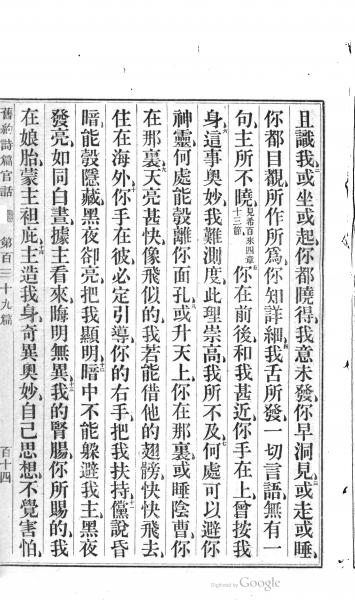 且識我、二我或坐或起、你都曉得、我意未發、你早洞見、三我或走或睡、
你都目觀、所作所爲、你知詳細、四我舌所發一切言語、無有一
句主所不曉、見希百來四章十三節五你在前後、和我甚近、你手在上、曾按我
身、六這事奧妙、我難測度、此理崇高、我所不及、七何處可以避你
神靈、何處能彀離你面孔、八或升天上、你在那裏、或睡陰曹、你
在那裏、九天亮甚快、像飛似的、我若能借他的翅膀、快快飛去、
住在海外、十你手在彼、必定引導、你的右手、把我扶持、十一儻說昏
暗能彀隱藏、黑夜卻亮、把我顯明、十二暗中不能躲避我主、黑夜
發亮、如同白晝、據主看來、晦明無異、十三我的腎腸、你所賜的、我
在娘胎、蒙主袒庇、十四主造我身、奇異奧妙、自己思想、不覺害怕、
舊約詩篇官話 第百三十九篇 百十四
Digitized by Google